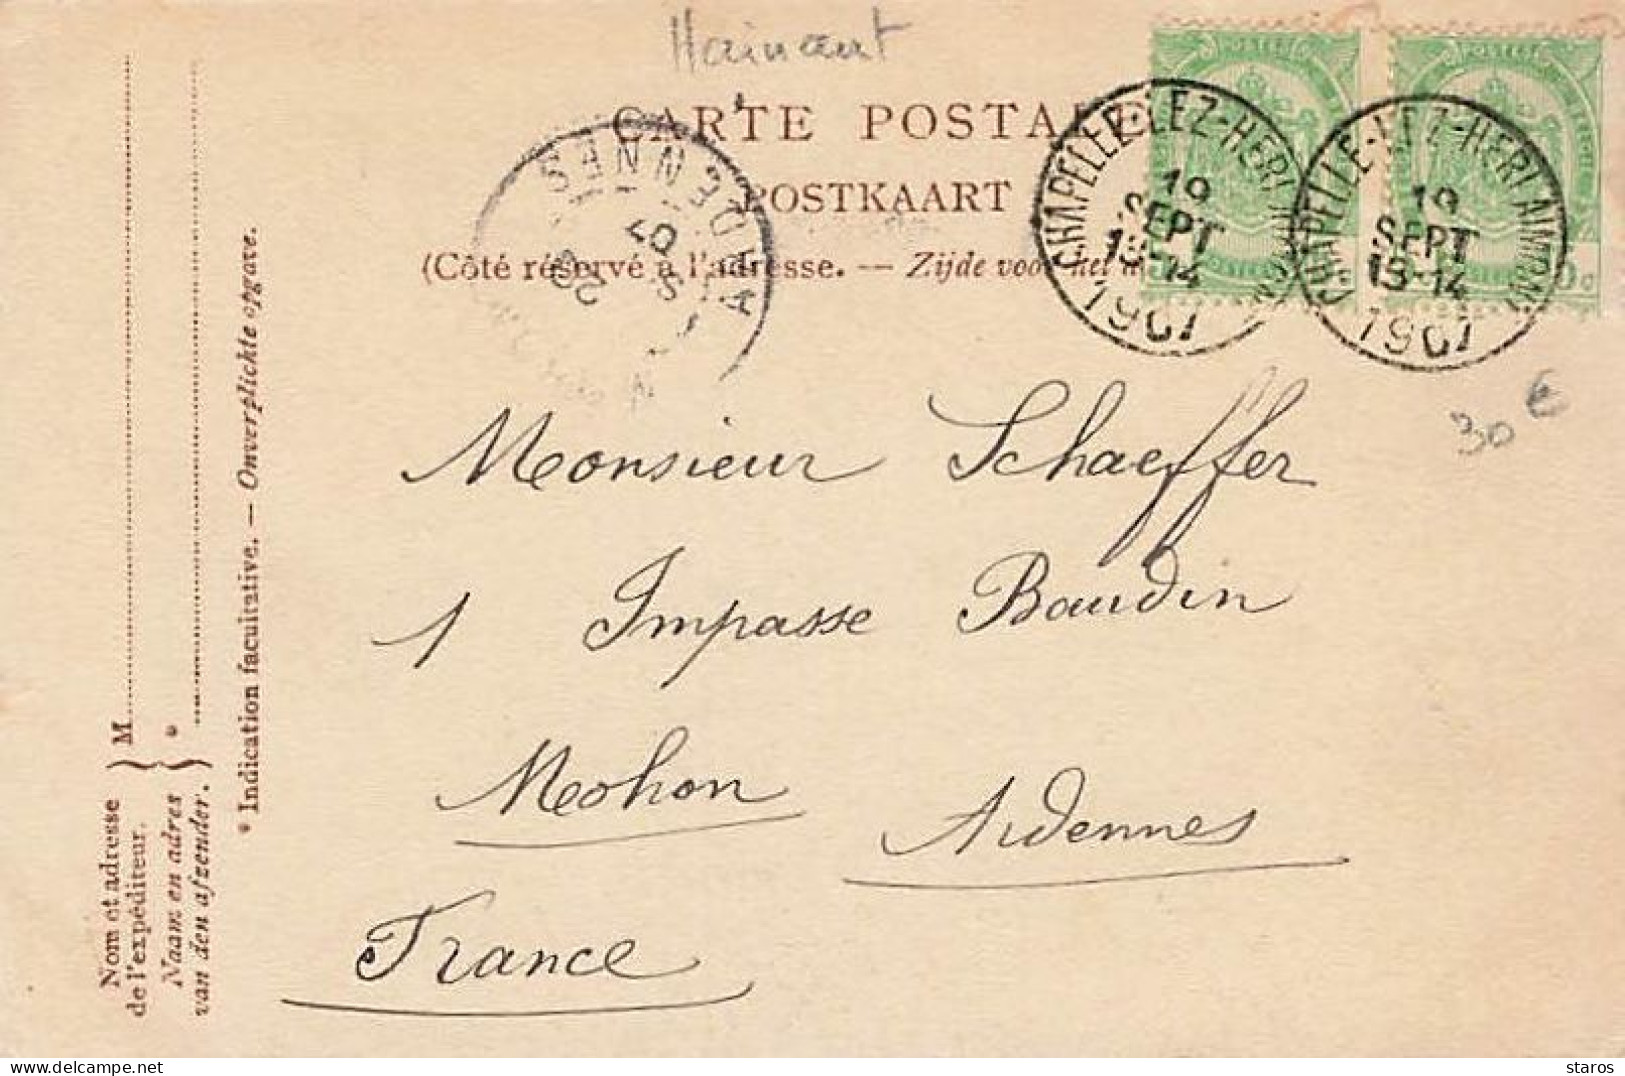 Hainaut
CARTE POSTALE
POSTKAART
(Côté réservé à l'adresse. — Zijde voor het
CHAPELLE-LEZ-HERLAIMONT
19
SEPT
13-14
1907
CHAPELLE-LEZ-HERLAIMONT
19
SEPT
13-14
1907
ARDENNES
07
30 €
Monsieur Schaeffer
1 Impasse Baudin
Mohon Ardennes
France
Nom et adresse
de l'expéditeur.
M
Naam en adres
van den afzender.
*
* Indication facultative. — Onverplichte opgave.
staros